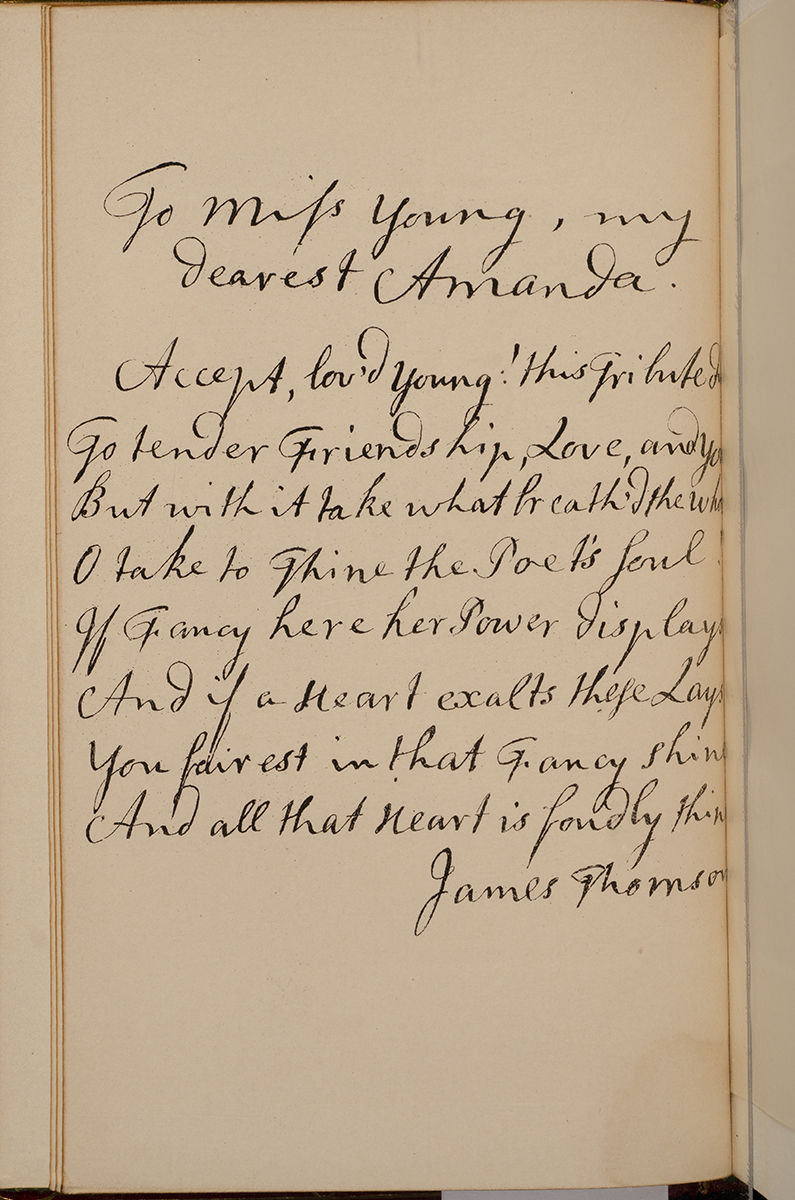 To Miſs Young, my
dearest Amanda.
Accept, lov'd Young! this Tribute
To tender Friendship, Love, and
But with it take what breath'd the
O take to Thine the Poet's Soul!
If Fancy here her Power displays
And if a Heart exalts theſe Lays
You fairest in that Fancy shine
And all that Heart is fondly
James Thomson